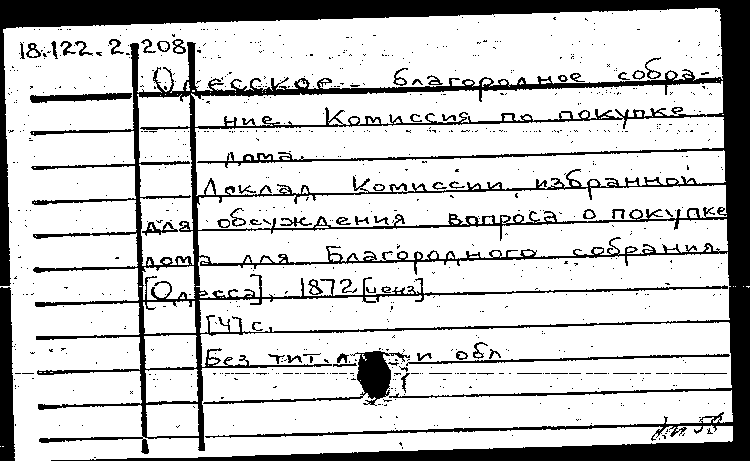 18.122.2.208.
Одесское благородное собра-
ние. Комиссия по покупке
дома.
Доклад Комиссии, избранной
для обсуждения вопроса о покупке
дома для Благородного собрания.
[Одесса], 1872 [ценз].
[4] с.
Без тит. л. и обл